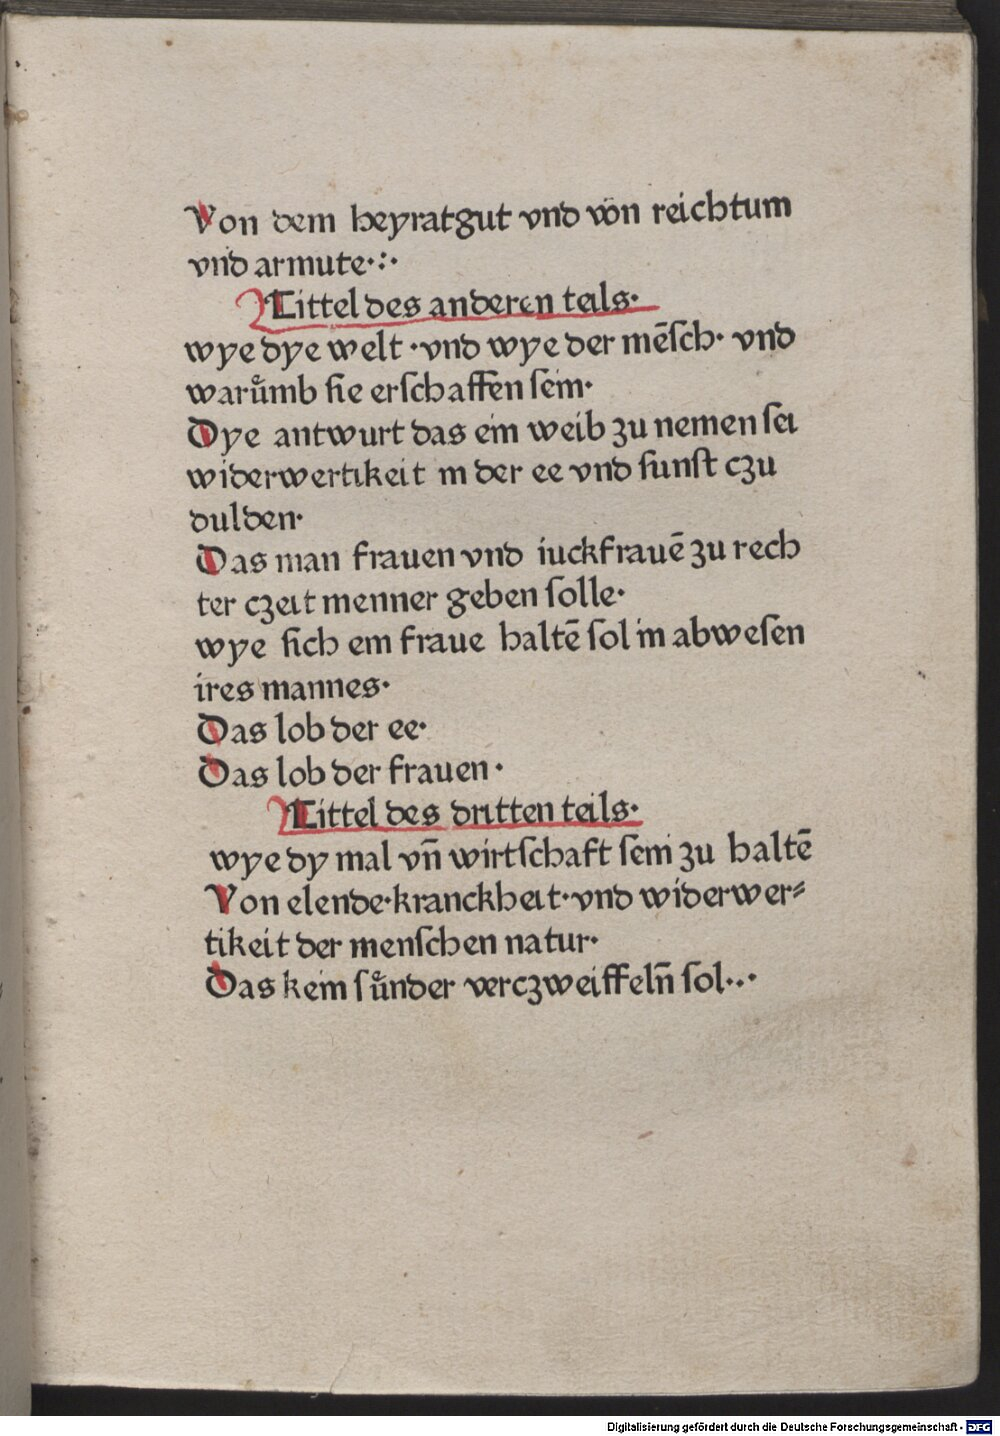 Von dem heyratgut vnd von reichtum
vnd armute·:·
Tittel des anderen teils·
wye dye welt ·vnd wye der mēſch· vnd
warůmb ſie erſchaffen ſein·
Dye antwurt das ein weib zu nemen ſei
widerwertikeit in der ee vnd ſunſt czu
dulden·
Das man frauen vnd iuckfrauē zu rech
ter czeit menner geben ſolle·
wye ſich ein fraue haltē ſol in abweſen
ires mannes·
Das lob der ee·
Das lob der frauen·
Tittel des dritten teils·
wye dy mal vn̄ wirtſchaft ſein zu haltē
Von elende·kranckheit·vnd widerwer⸗
tikeit der menſchen natur·
Das kein ſůnder verczweiffeln̄ ſol···
Digitalisierung gefördert durch die Deutsche Forschungsgemeinschaft - DFG